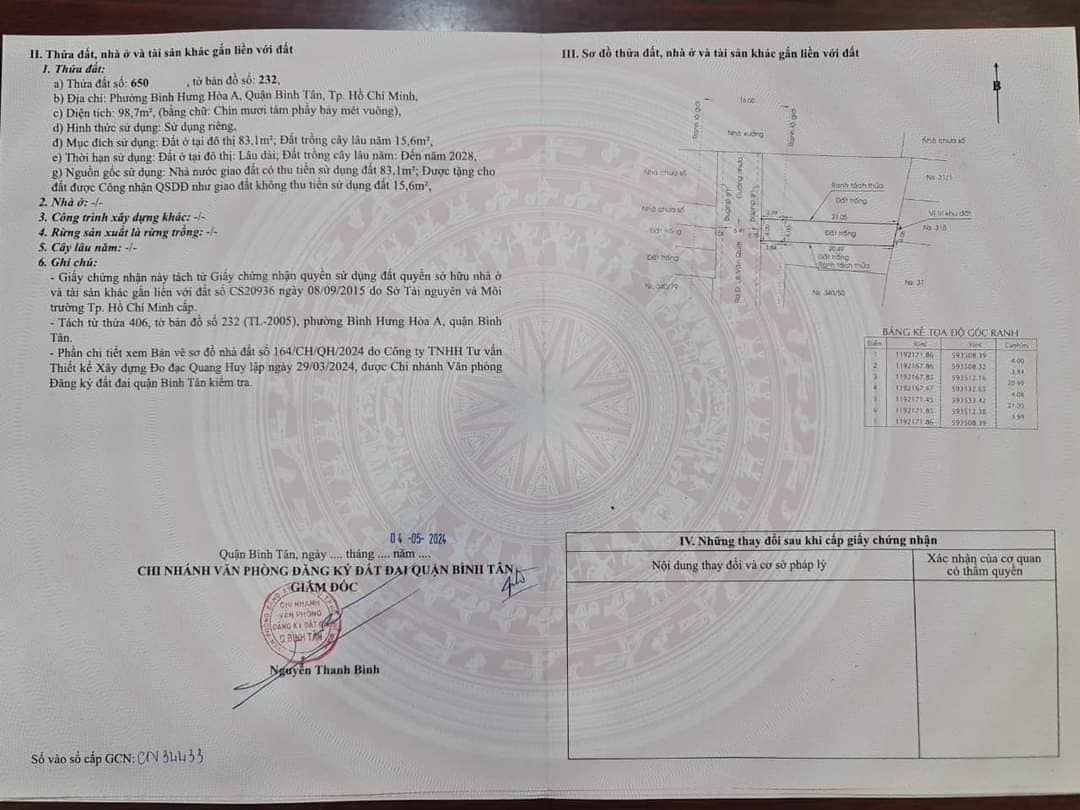 II. Thửa đất, nhà ở và tài sản khác gắn liền với đất
1. Thửa đất:
a) Thửa đất số: 650 , tờ bản đồ số: 232,
b) Địa chỉ: Phường Bình Hưng Hòa A, Quận Bình Tân, Tp. Hồ Chí Minh,
c) Diện tích: 98,7m², (bằng chữ: Chín mươi tám phẩy bảy mét vuông),
d) Hình thức sử dụng: Sử dụng riêng,
đ) Mục đích sử dụng: Đất ở tại đô thị 83,1m²; Đất trồng cây lâu năm 15,6m²,
e) Thời hạn sử dụng: Đất ở tại đô thị: Lâu dài; Đất trồng cây lâu năm: Đến năm 2028,
g) Nguồn gốc sử dụng: Nhà nước giao đất có thu tiền sử dụng đất 83,1m²; Được tặng cho
đất được Công nhận QSDĐ như giao đất không thu tiền sử dụng đất 15,6m²,
2. Nhà ở: -/-
3. Công trình xây dựng khác: -/-
4. Rừng sản xuất là rừng trồng: -/-
5. Cây lâu năm: -/-
6. Ghi chú:
- Giấy chứng nhận này tách từ Giấy chứng nhận quyền sử dụng đất quyền sở hữu nhà ở
và tài sản khác gắn liền với đất số CS20936 ngày 08/09/2015 do Sở Tài nguyên và Môi
trường Tp. Hồ Chí Minh cấp.
- Tách từ thửa 406, tờ bản đồ số 232 (TL-2005), phường Bình Hưng Hòa A, quận Bình
Tân.
- Phần chi tiết xem Bản vẽ sơ đồ nhà đất số 164/CH/QH/2024 do Công ty TNHH Tư vấn
Thiết kế Xây dựng Đo đạc Quang Huy lập ngày 29/03/2024, được Chi nhánh Văn phòng
Đăng ký đất đai quận Bình Tân kiểm tra.
04-05-2024
Quận Bình Tân, ngày .... tháng .... năm ....
CHI NHÁNH VĂN PHÒNG ĐĂNG KÝ ĐẤT ĐAI QUẬN BÌNH TÂN
GIÁM ĐỐC
CHI NHÁNH
VĂN PHÒNG
ĐĂNG KÝ ĐẤT ĐAI
Q.BÌNH TÂN
Nguyễn Thanh Bình
Số vào sổ cấp GCN: CN34433
III. Sơ đồ thửa đất, nhà ở và tài sản khác gắn liền với đất
B
16.00
Ranh lộ giới
Ranh lộ giới
Nhà xưởng
Nhà chưa số
Nhà chưa số
Đường nhựa
Ns: 31/1
Ranh tách thửa
Nhà chưa số
Đất trống
Vị trí khu đất
3.99
21.05
Ns: 31B
Đất trống
6.41
4.00
4.00
Đất trống
4.08
3.84
20.49
Đất trống
Đất trống
Ranh tách thửa
Đ. Lê Văn Quới
Ns: 340/79
Ns: 340/50
Ns: 31
BẢNG KÊ TỌA ĐỘ GÓC RANH
Điểm X(m) Y(m) Cạnh(m)
1 1192171.86 593508.39
4.00
2 1192167.86 593508.32
3.84
3 1192167.83 593512.16
20.49
4 1192167.67 593532.65
4.08
5 1192171.45 593533.42
21.05
6 1192171.85 593512.38
3.99
1 1192171.86 593508.39
IV. Những thay đổi sau khi cấp giấy chứng nhận
Nội dung thay đổi và cơ sở pháp lý
Xác nhận của cơ quan
có thẩm quyền